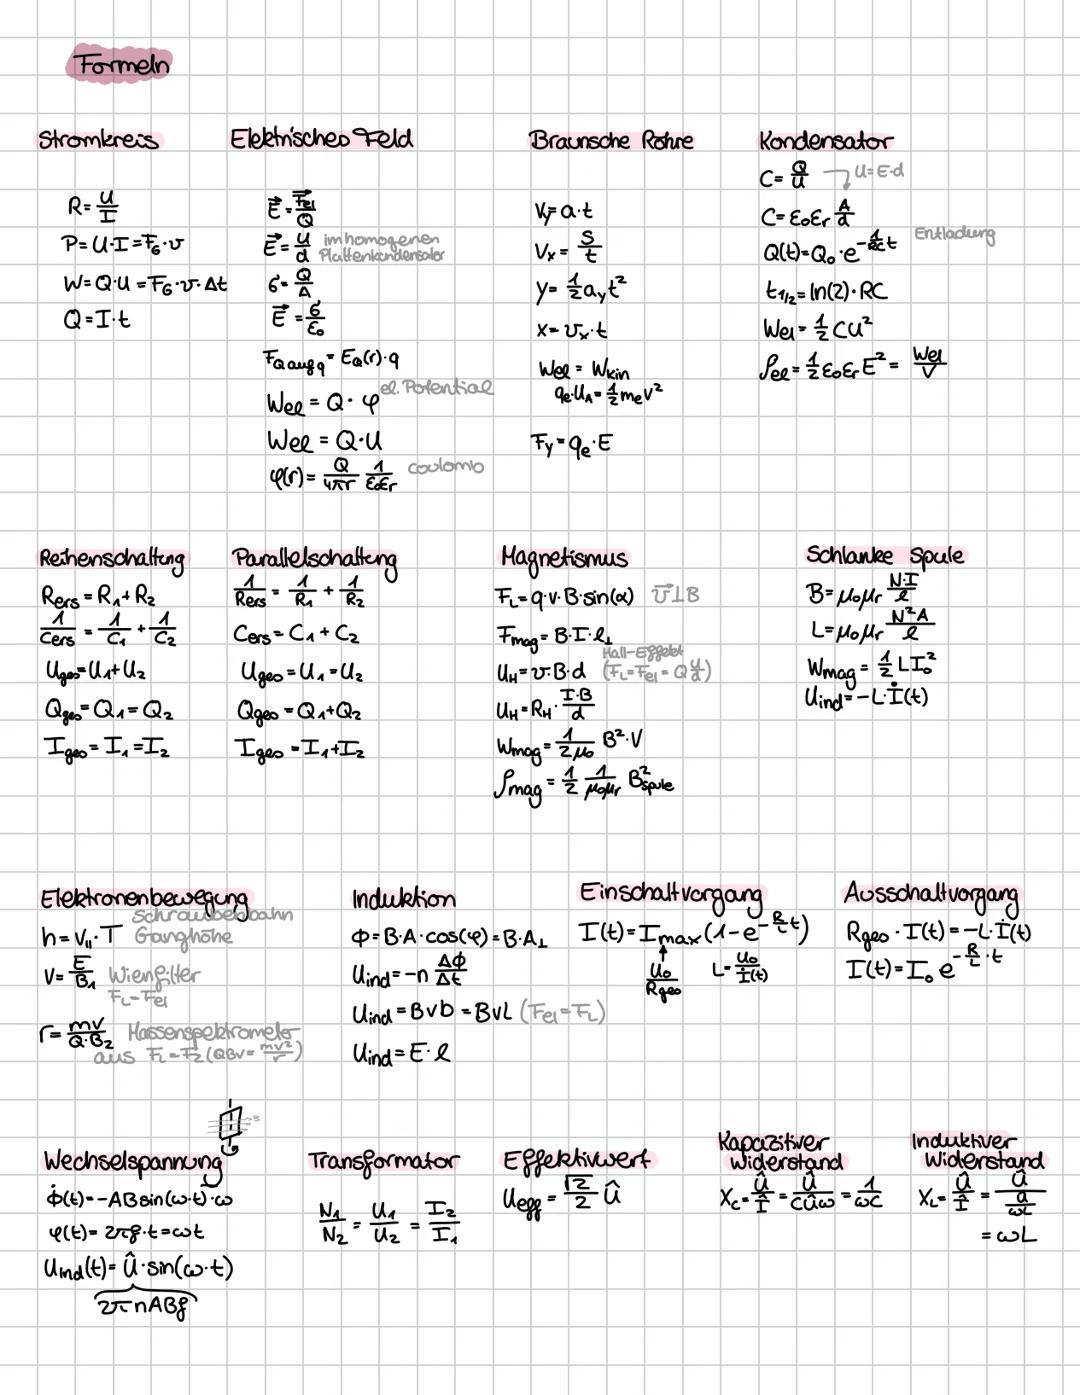 Formeln
Stromkreis
R = U/I
P = U·I = F_G·v
W = Q·U = F_G·v·Δt
Q = I·t
Elektrisches Feld
E⃗ = F⃗el/Q
E⃗ = U/d im homogenen Plattenkondensator
σ = Q/A
E⃗ = σ/ε₀
F_Q auf q = E_Q(r)·q
Wel = Q·φ el. Potential
Wel = Q·U
φ(r) = Q/4πr 1/ε₀εr Coulomb
Braunsche Röhre
Vy = a·t
Vx = s/t
y = 1/2 a_y t²
x = v_x·t
Wel = Wkin
qe·U_A = 1/2 me v²
Fy = qe·E
Kondensator
C = Q/U U = E·d
C = ε₀εr A/d
Q(t) = Q₀·e^(-1/RC t) Entladung
t1/2 = ln(2)·RC
Wel = 1/2 CU²
ρel = 1/2 ε₀εr E² = Wel/V
Reihenschaltung
Rers = R₁ + R₂
1/Cers = 1/C₁ + 1/C₂
Uges = U₁ + U₂
Qges = Q₁ = Q₂
Iges = I₁ = I₂
Parallelschaltung
1/Rers = 1/R₁ + 1/R₂
Cers = C₁ + C₂
Uges = U₁ = U₂
Qges = Q₁ + Q₂
Iges = I₁ + I₂
Magnetismus
F_L = q·v·B·sin(α) v⃗⊥B
Fmag = B·I·l⊥
Hall-Effekt
U_H = v·B·d (F_L = Fel = Q U/d)
U_H = R_H · I·B/d
Wmag = 1/2μ₀ B²·V
ρmag = 1/2 1/μ₀μr B²Spule
Schlanke Spule
B = μ₀μr N·I/l
L = μ₀μr N²A/l
Wmag = 1/2 L I₀²
Uind = -L·İ(t)
Elektronenbewegung
Schraubenbahn
h = v_∥·T Ganghöhe
v = E/B₁ Wienfilter
F_L = Fel
r = mv/Q·B₂ Massenspektrometer
aus F_L = F_Z (QBv = mv²/r)
Induktion
Φ = B·A·cos(φ) = B·A⊥
Uind = -n ΔΦ/Δt
Uind = Bvb = BvL (Fel = F_L)
Uind = E·l
Einschaltvorgang
I(t) = Imax (1-e^(-R/L t))
U₀/Rges L = U₀/İ(t)
Ausschaltvorgang
Rges · I(t) = -L·İ(t)
I(t) = I₀ e^(-R/L · t)
B
Wechselspannung
Φ̇(t) = -AB sin(ω·t)·ω
φ(t) = 2πf·t = ωt
Uind(t) = Û·sin(ω·t)
2πnABf
Transformator
N₁/N₂ = U₁/U₂ = I₂/I₁
Effektivwert
Ueff = √2/2 Û
Kapazitiver
Widerstand
X_C = Û/Î = Û/CÛω = 1/ωC
Induktiver
Widerstand
X_L = Û/Î = Û/(Û/ωL)
= ωL